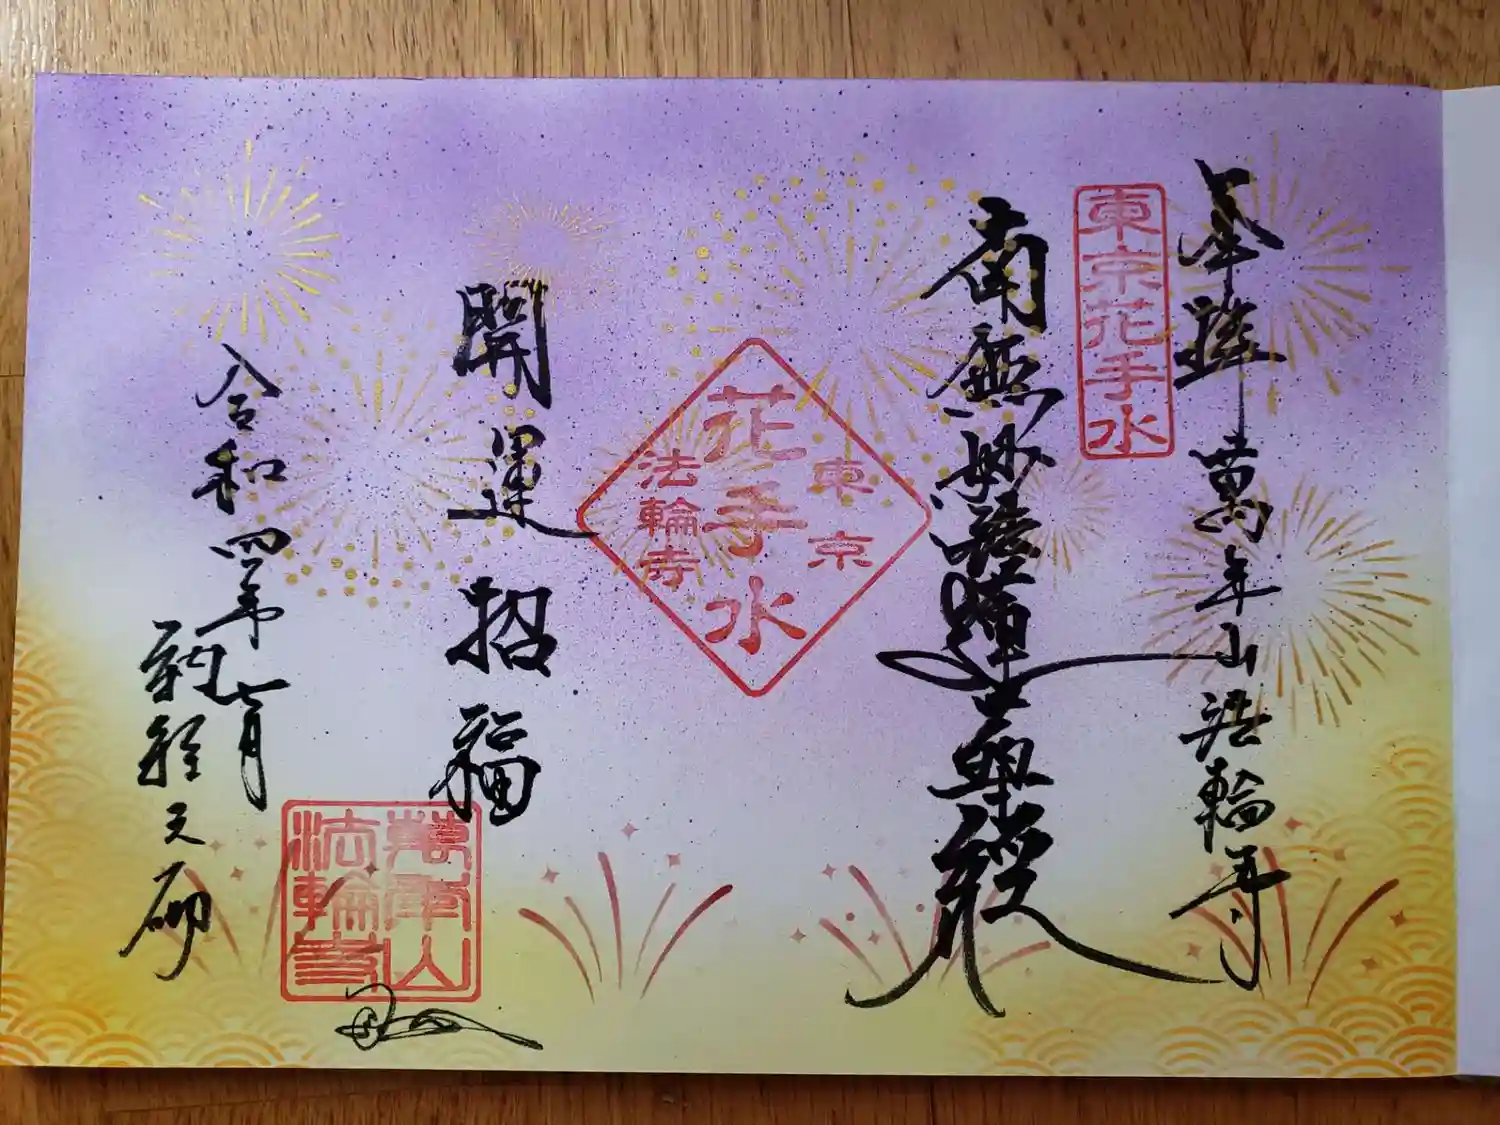 奉拝 萬年山法輪寺
東京花手水
南無妙法蓮華経
東京
花手水
法輪寺
開運招福
令和四年七月
納経之砌
萬年山
法輪寺